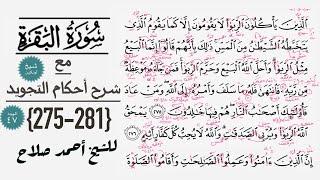 سُورَةُ البَقَرَةِ
مع
شرح أحكام التجويد
{275-281}
للشيخ أحمد صلاح
الَّذِينَ يَأْكُلُونَ الرِّبَوٰا۟ لَا يَقُومُونَ إِلَّا كَمَا يَقُومُ الَّذِى
يَتَخَبَّطُهُ الشَّيْطَٰنُ مِنَ الْمَسِّ ذَٰلِكَ بِأَنَّهُمْ قَالُوٓا۟ إِنَّمَا الْبَيْعُ
مِثْلُ الرِّبَوٰا۟ وَأَحَلَّ اللَّهُ الْبَيْعَ وَحَرَّمَ الرِّبَوٰا۟ فَمَن جَآءَهُۥ مَوْعِظَةٌ
مِّن رَّبِّهِۦ فَانتَهَىٰ فَلَهُۥ مَا سَلَفَ وَأَمْرُهُۥٓ إِلَى اللَّهِ وَمَنْ عَادَ
فَأُو۟لَٰٓئِكَ أَصْحَٰبُ النَّارِ هُمْ فِيهَا خَٰلِدُونَ ٢٧٥ يَمْحَقُ
اللَّهُ الرِّبَوٰا۟ وَيُرْبِى الصَّدَقَٰتِ وَاللَّهُ لَا يُحِبُّ كُلَّ كَفَّارٍ أَثِيمٍ ٢٧٦
إِنَّ الَّذِينَ ءَامَنُوا۟ وَعَمِلُوا۟ الصَّٰلِحَٰتِ وَأَقَامُوا۟ الصَّلَوٰةَ